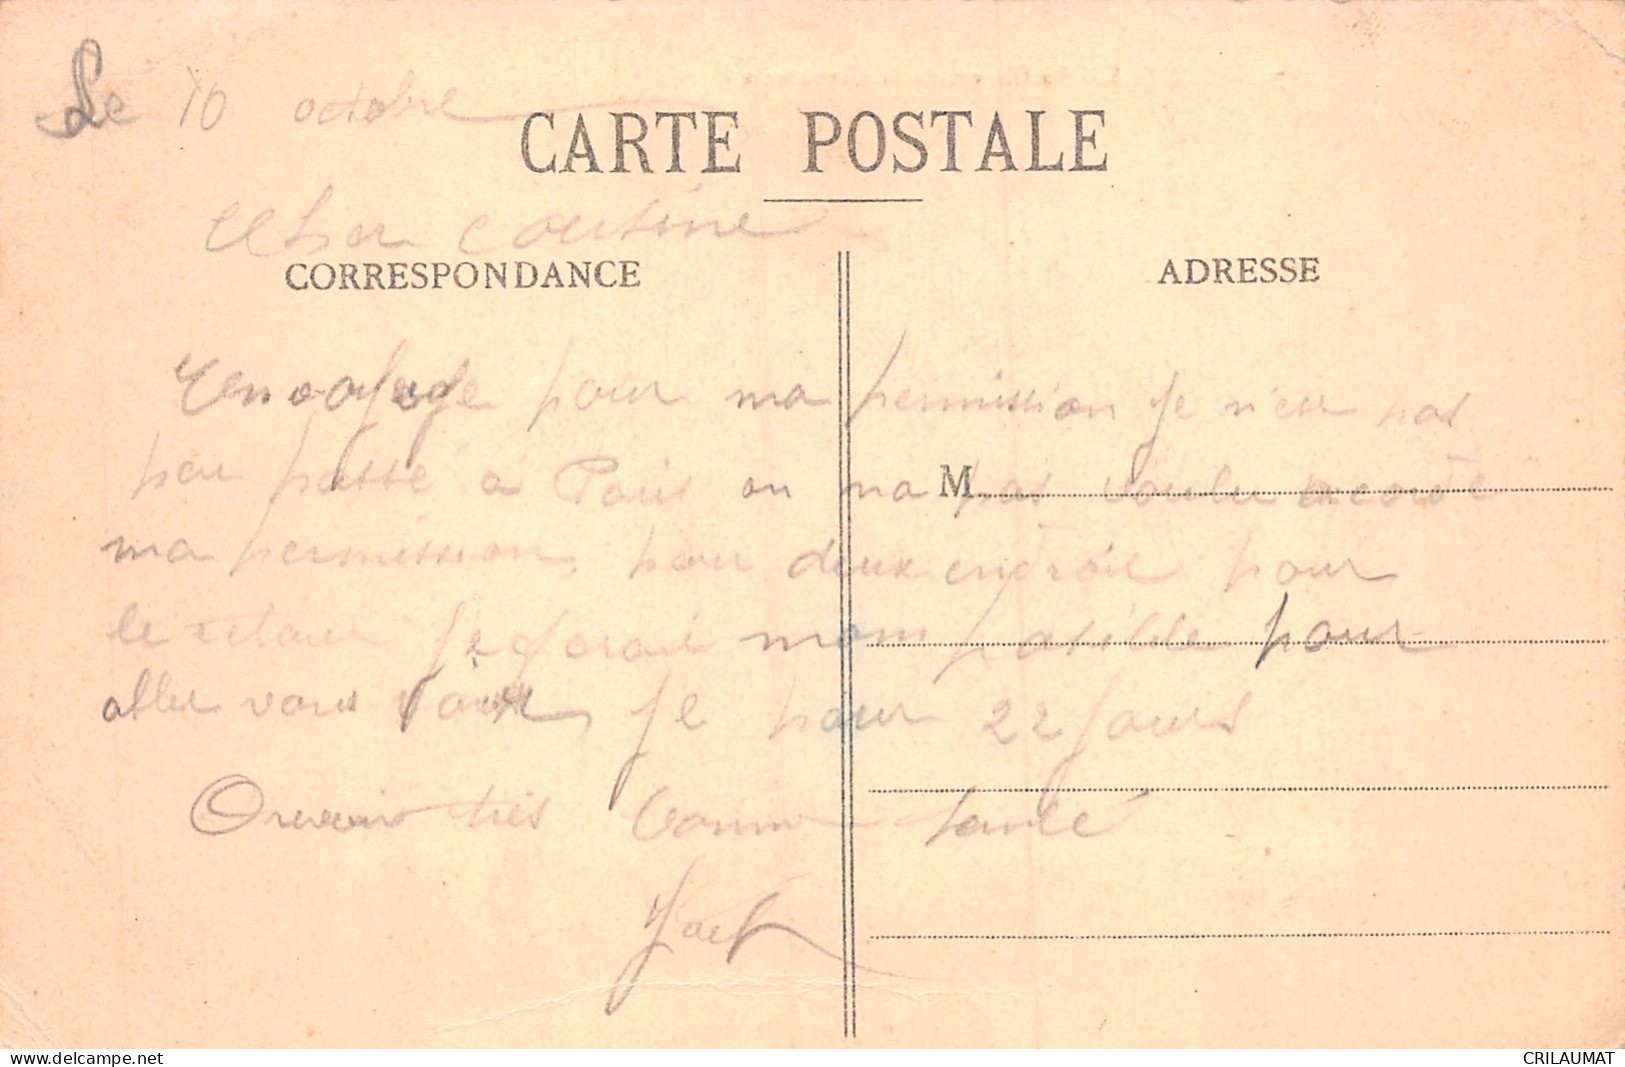 Le 10 octobre
CARTE POSTALE
cher cousine
CORRESPONDANCE
ADRESSE
En voyage pour ma permission je n'est pas
peu passé a Paris on ma pas voulu acorde
M
ma permission pour deux entroie pour
le retour je ferai mon posible pour
aller vous voir je pour 22 jours
Orevoir très bonne santé
CRILAUMAT